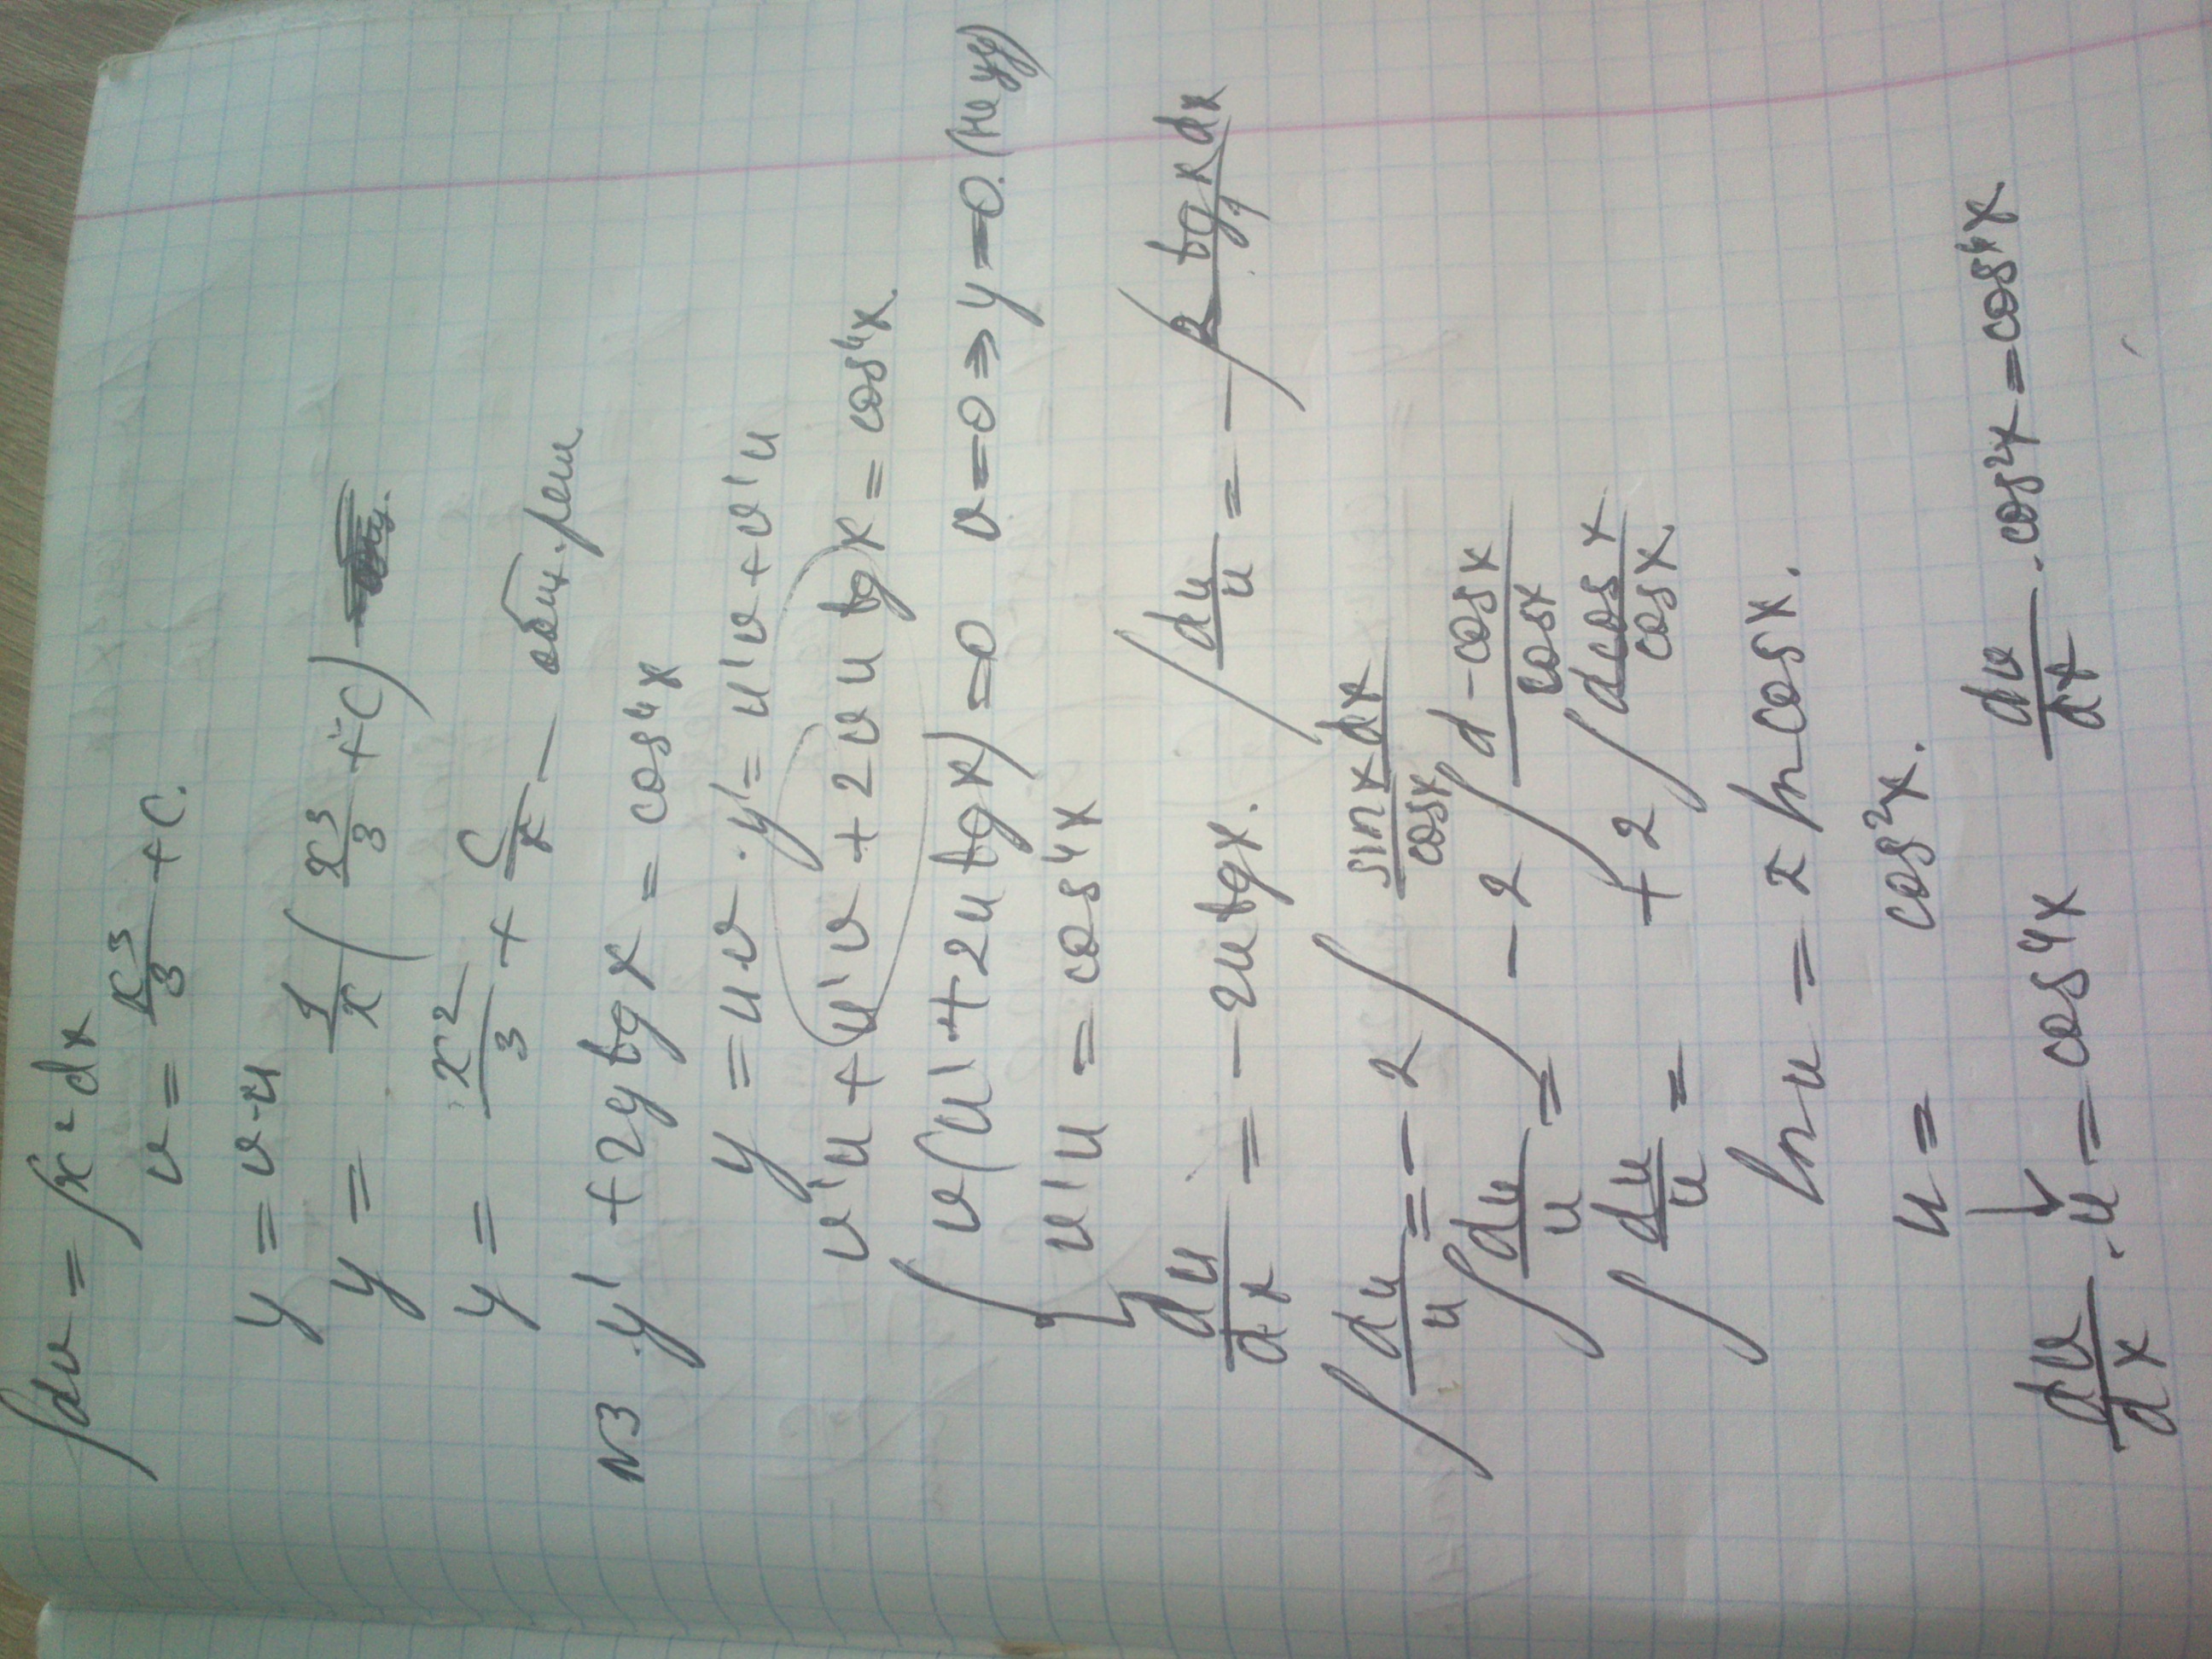 ∫dv = ∫x²dx
v = x³/3 + C.
y = v·u
y = 1/x (x³/3 + C)
y = x²/3 + C/x — общ. реш
N3 y' + 2y tg x = cos⁴x
y = uv · y' = u'v + v'u
v'u + u'v + 2vu tg x = cos⁴x.
v(u' + 2u tg x) = 0 v = 0 ⇒ y = 0.
v'u = cos⁴x
du/dx = -2u tg x. ∫du/u = -∫2 tg x dx
∫du/u = -2∫ sin x dx/cos x
∫du/u = -2∫ d -cos x/cos x
∫du/u = +2∫ dcos x/cos x.
ln u = 2 ln cos x.
u = cos²x.
dv/dx · u = cos⁴x dv/dx · cos²x = cos⁴x